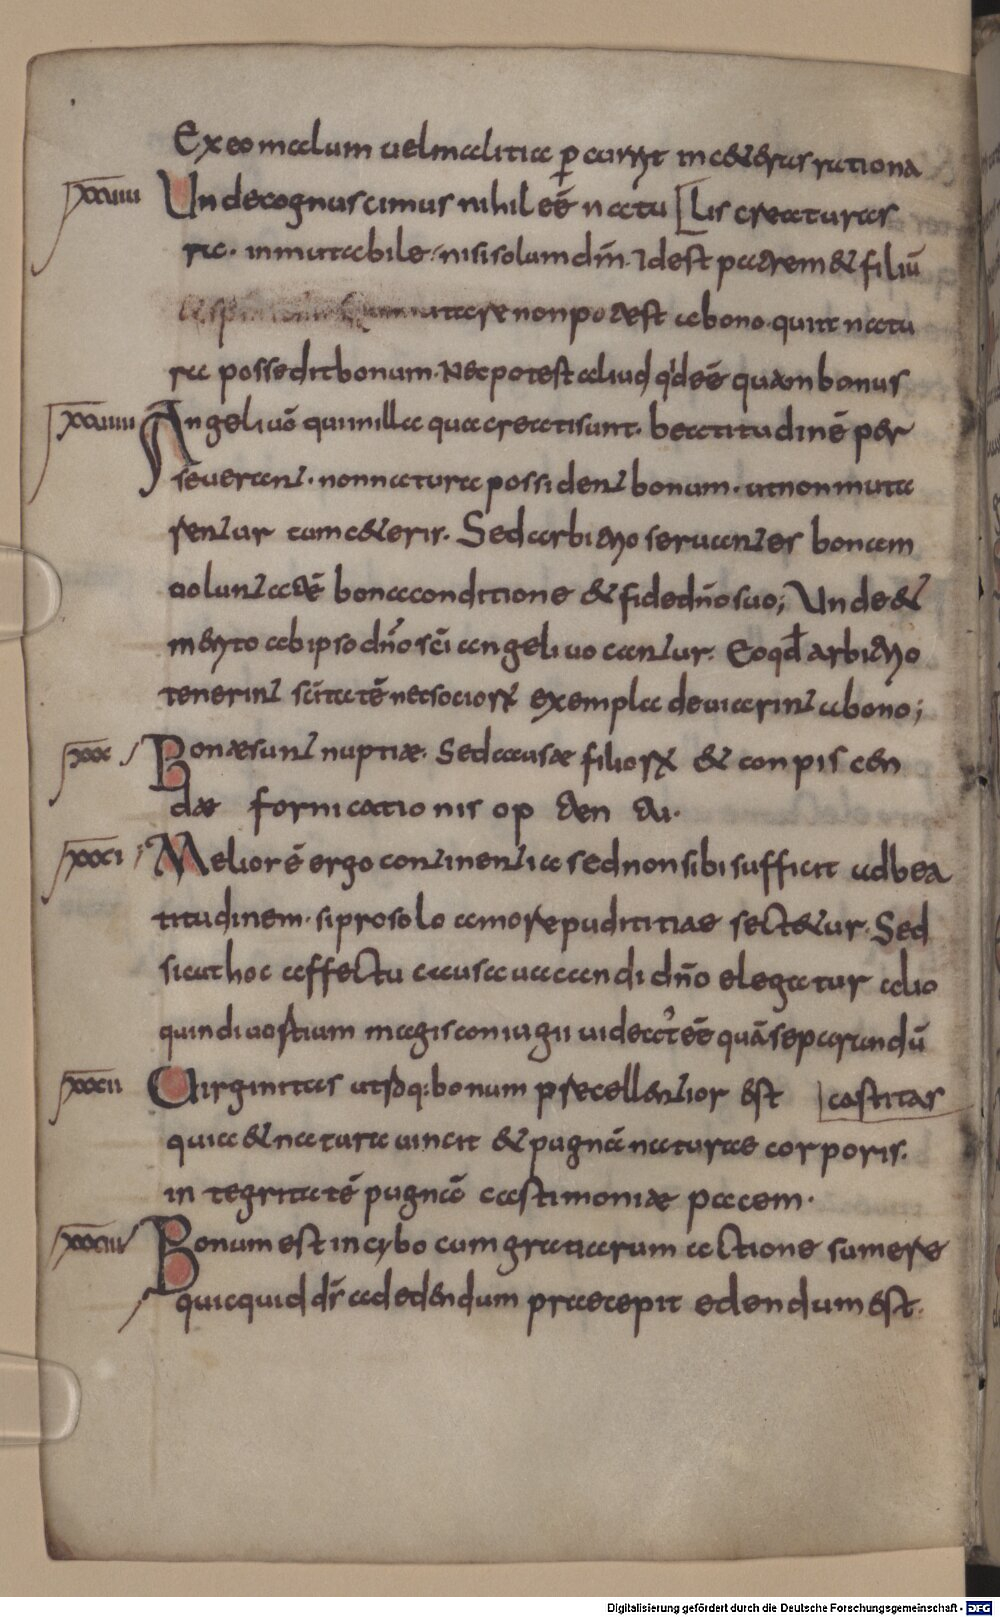 Exeo malum uel malitia ꝑ currit in ceteris rationa
xxuiii Unde cognuscimus nihil eē natu [lis creaturas
ra· inmutabile· nisi solum dm̄· ⁊dest patrem & filiū
mutare non potest a bono quia natu
ra possedit bonum· Nec potest aliud qđ eē quam bonus
xxuiiii Angeli uō qui in illa qua creati sunt· beatitudinē per
seuerant· non natura possident bonum· ut non muta
rentur cum ceteris· Sed arbitrio seruantes bonam
uoluntatē bonae conditione & fidē dn̄o suo; Unde &
merito ab ipso dn̄o sc̄i angeli uocantur· Eo qđ arbitrio
tenerint sc̄itatē nec socioꝝ exempla deuiarint a bono;
xxx Bonæ sunt nuptiæ· Sed causæ filioꝝ & conpiscen
dæ fornicationis optenđtai·
xxxi Melior ē ergo continentia sed non sibi sufficit ad bea
titudinem· si pro solo amore puditiae sectetur· Sed
si cut hoc affectu causa uacandi dn̄o elegatur alio
quin diuostium magis coniugii uidear̄ eē quā separandū
xxxii Uirginitas utroq: bonum precellentior est | castitas
quia & natura uincit & pugnā naturae corporis·
in tegritatē pugnā castimoniæ pacem·
xxxiii Bonum est in cybo cum gratiarum actione sumere
quicquid dr̄ ad edendum praecepit edendum est·
Digitalisierung gefördert durch die Deutsche Forschungsgemeinschaft - DFG